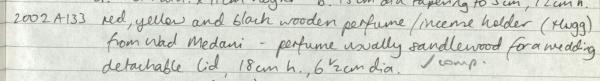 13cm dia tapering to 3cm, 12cm h.
2002 A133 red, yellow and black wooden perfume/incense holder (Hugg)
from Wad Medani - perfume usually sandlewood for a wedding
detachable lid, 18cm h., 6½cm dia. ✓ comp.